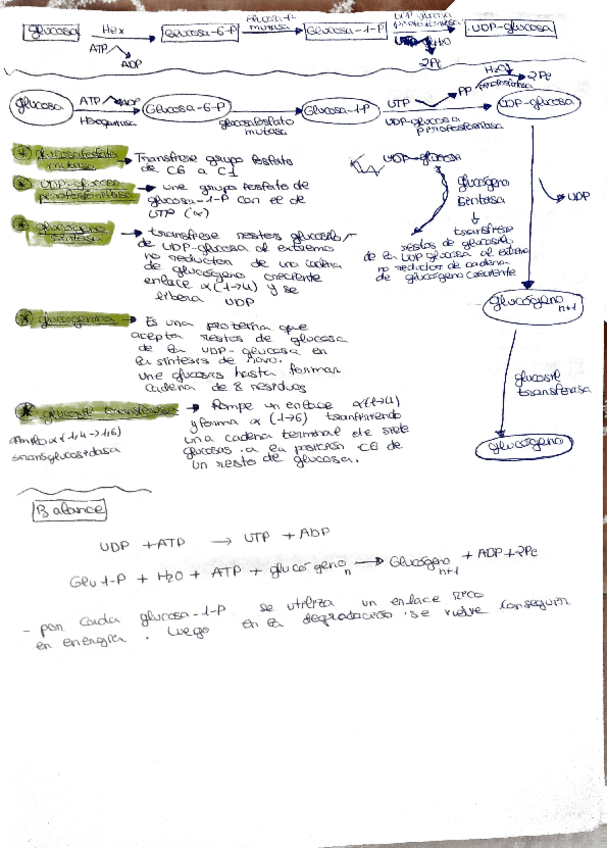 glucosa Hex Glucosa-6-P Glucosa-1-P UDP-glucosa
mutasa
ATP ADP
2Pi
H2O 2Pi
glucosa ATP ADP Glucosa-6-P Glucosa-1P UTP PP UDP-glucosa
Hexoquinasa glucosafosfato UDP-glucosa
mutasa pirofosforilasa
* glucosafosfato → Transfiere grupo fosfato
mutasa de C6 a C1
* UDP-glucosa → une grupo fosfato de
pirofosforilasa glucosa-1-P con el de
UTP (α)
* glucógeno → transfiere restos glucosa
sintasa de UDP-glucosa al extremo
no reductor de una cadena
de glucógeno creciente
enlace α(1→4) y se
libera UDP
UDP-glucosa
glucógeno
sintasa
transfiere
restos de glucosa
de la UDP glucosa al extremo
no reductor de cadena
de glucógeno creciente
UDP
Glucógeno n+1
* glucogenina → Es una proteína que
acepta restos de glucosa
de la UDP-glucosa en
la síntesis de novo.
une glucosas hasta formar
cadena de 8 residuos
glucosil
transferasa
glucógeno
* glucosil transferasa → Rompe un enlace α(1→4)
y forma α (1→6) transfiriendo
una cadena terminal de siete
glucosas a la posición C6 de
un resto de glucosa.
Amilo α(1,4→1,6)
transglucosidasa
Balance
UDP + ATP → UTP + ADP
Glu 1-P + H2O + ATP + glucógeno n → Glucógeno n+1 + ADP + 2Pi
- por cada glucosa-1-P se utiliza un enlace rico
en energía. Luego en la degradación se vuelve conseguir